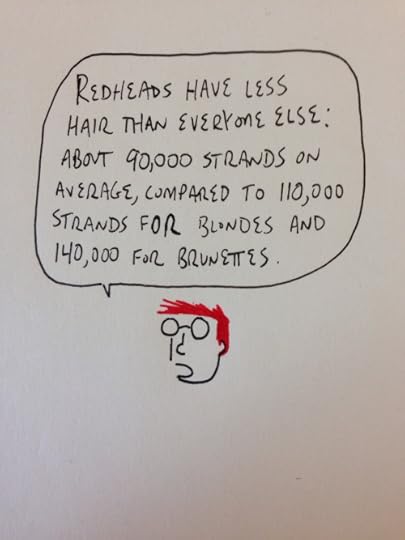 REDHEADS HAVE LESS
HAIR THAN EVERYONE ELSE:
ABOUT 90,000 STRANDS ON
AVERAGE, COMPARED TO 110,000
STRANDS FOR BLONDES AND
140,000 FOR BRUNETTES.